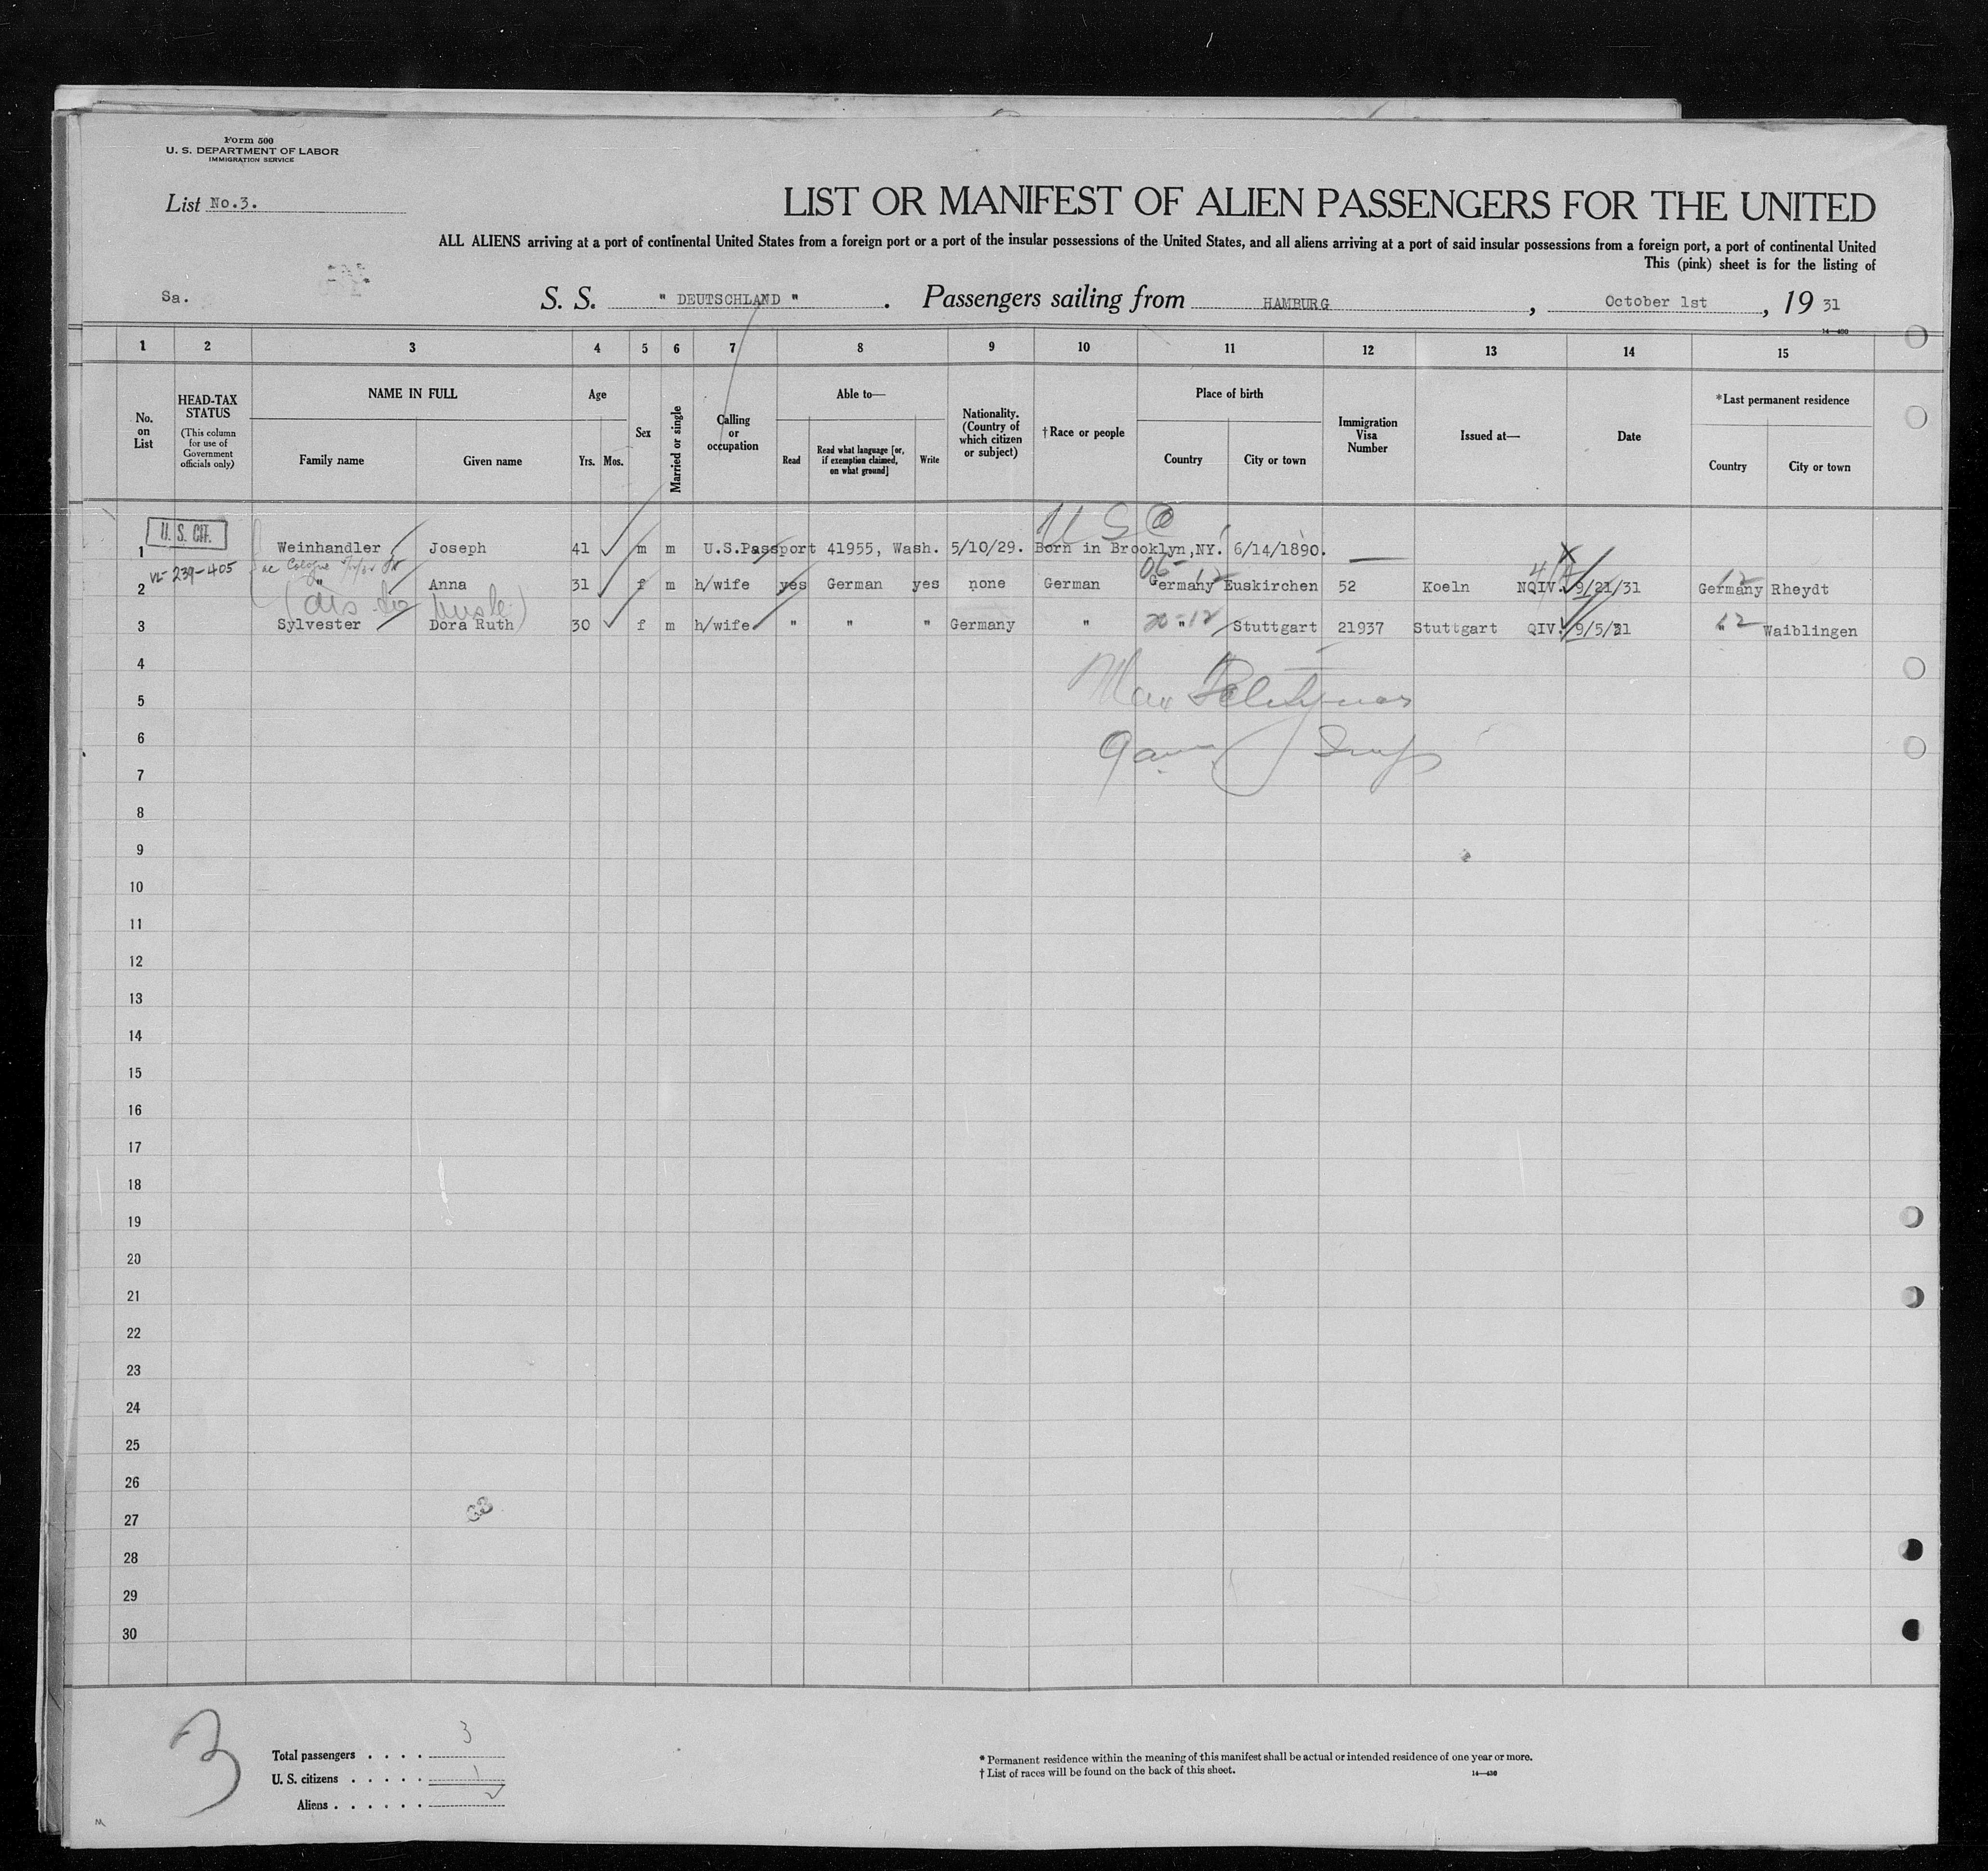 Form 500
U. S. DEPARTMENT OF LABOR
IMMIGRATION SERVICE
List No.3.
LIST OR MANIFEST OF ALIEN PASSENGERS FOR THE UNITED
ALL ALIENS arriving at a port of continental United States from a foreign port or a port of the insular possessions of the United States, and all aliens arriving at a port of said insular possessions from a foreign port, a port of continental United
This (pink) sheet is for the listing of
Sa. S. S. " DEUTSCHLAND " . Passengers sailing from HAMBURG , October 1st , 19 31
14—430
1 2 3 4 5 6 7 8 9 10 11 12 13 14 15
No. on List
HEAD-TAX STATUS (This column for use of Government officials only)
NAME IN FULL
Family name Given name
Age
Yrs. Mos.
Sex
Married or single
Calling or occupation
Able to—
Read
Read what language [or, if exemption claimed, on what ground]
Write
Nationality. (Country of which citizen or subject)
†Race or people
Place of birth
Country City or town
Immigration Visa Number
Issued at—
Date
*Last permanent residence
Country City or town
U. S. CIT.
U S C
1 Weinhandler Joseph 41 m m U.S.Passport 41955, Wash. 5/10/29. Born in Brooklyn,NY. 6/14/1890.
VL-239-405
06- 12
2 " Anna 31 f m h/wife yes German yes none German Germany Euskirchen 52 Koeln NQIV. 9/21/31 Germany Rheydt
12
3 Sylvester Dora Ruth 30 f m h/wife " " " Germany " " Stuttgart 21937 Stuttgart QIV. 9/5/31 " Waiblingen
12
4
5
6
7
8
9
10
11
12
13
14
15
16
17
18
19
20
21
22
23
24
25
26
27
28
29
30
3
Total passengers . . . . 3
U. S. citizens . . . . . 1
Aliens . . . . . . 2
* Permanent residence within the meaning of this manifest shall be actual or intended residence of one year or more.
† List of races will be found on the back of this sheet.
14—430